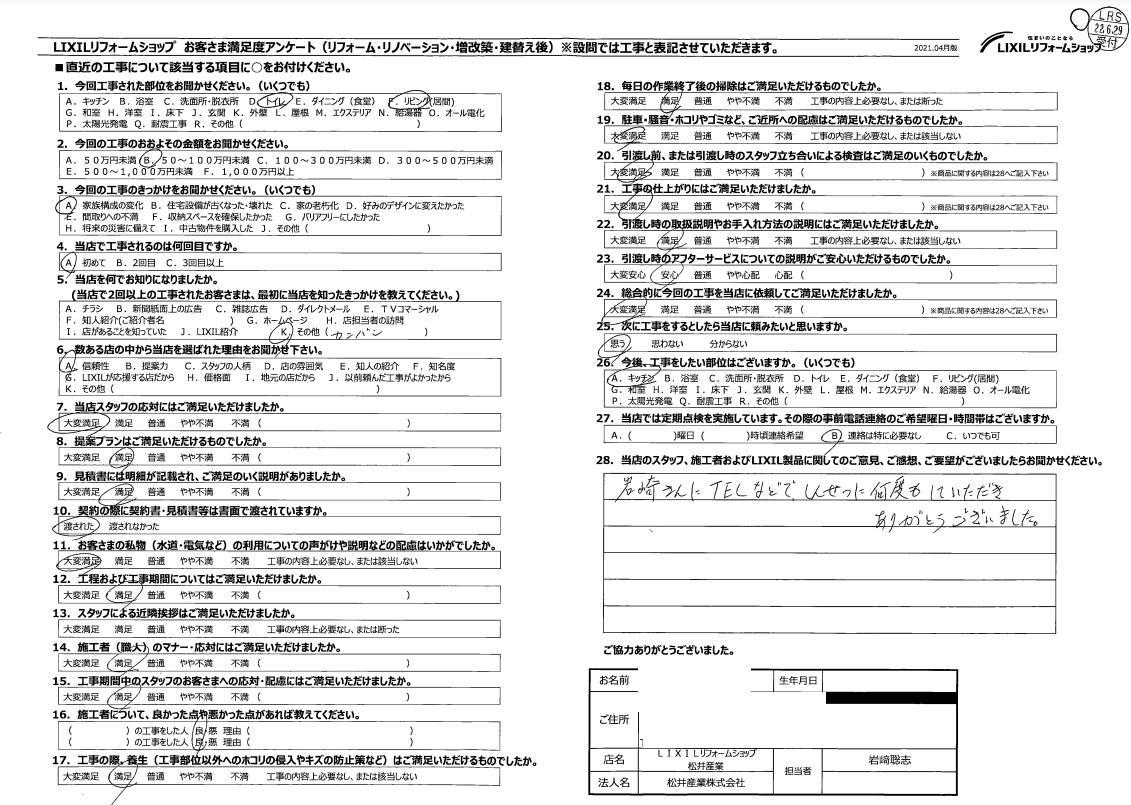 LRS
22.6.29
受付
LIXILリフォームショップ お客さま満足度アンケート（リフォーム・リノベーション・増改築・建替え後）※設問では工事と表記させていただきます。
2021.04月版
住まいのことなら
LIXILリフォームショップ
■直近の工事について該当する項目に○をお付けください。
1．今回工事された部位をお聞かせください。（いくつでも）
A．キッチン B．浴室 C．洗面所・脱衣所 D．トイレ E．ダイニング（食堂） F．リビング(居間)
G．和室 H．洋室 I．床下 J．玄関 K．外壁 L．屋根 M．エクステリア N．給湯器 O．オール電化
P．太陽光発電 Q．耐震工事 R．その他（ ）
2．今回の工事のおおよその金額をお聞かせください。
A．50万円未満 B．50～100万円未満 C．100～300万円未満 D．300～500万円未満
E．500～1,000万円未満 F．1,000万円以上
3．今回の工事のきっかけをお聞かせください。（いくつでも）
A．家族構成の変化 B．住宅設備が古くなった・壊れた C．家の老朽化 D．好みのデザインに変えたかった
E．間取りへの不満 F．収納スペースを確保したかった G．バリアフリーにしたかった
H．将来の災害に備えて I．中古物件を購入した J．その他（ ）
4．当店で工事されるのは何回目ですか。
A．初めて B．2回目 C．3回目以上
5．当店を何でお知りになりましたか。
(当店で2回以上の工事されたお客さまは、最初に当店を知ったきっかけを教えてください。)
A．チラシ B．新聞紙面上の広告 C．雑誌広告 D．ダイレクトメール E．TVコマーシャル
F．知人紹介(ご紹介者名 ) G．ホームページ H．店担当者の訪問
I．店があることを知っていた J．LIXIL紹介 K．その他（ カンバン ）
6．数ある店の中から当店を選ばれた理由をお聞かせ下さい。
A．信頼性 B．提案力 C．スタッフの人柄 D．店の雰囲気 E．知人の紹介 F．知名度
G．LIXILが応援する店だから H．価格面 I．地元の店だから J．以前頼んだ工事がよかったから
K．その他（ ）
7．当店スタッフの応対にはご満足いただけましたか。
大変満足 満足 普通 やや不満 不満（ ）
8．提案プランはご満足いただけるものでしたか。
大変満足 満足 普通 やや不満 不満（ ）
9．見積書には明細が記載され、ご満足のいく説明がありましたか。
大変満足 満足 普通 やや不満 不満（ ）
10．契約の際に契約書・見積書等は書面で渡されていますか。
渡された 渡されなかった
11．お客さまの私物（水道・電気など）の利用についての声がけや説明などの配慮はいかがでしたか。
大変満足 満足 普通 やや不満 不満 工事の内容上必要なし、または該当しない
12．工程および工事期間についてはご満足いただけましたか。
大変満足 満足 普通 やや不満 不満（ ）
13．スタッフによる近隣挨拶はご満足いただけましたか。
大変満足 満足 普通 やや不満 不満 工事の内容上必要なし、または断った
14．施工者（職人）のマナー・応対にはご満足いただけましたか。
大変満足 満足 普通 やや不満 不満（ ）
15．工事期間中のスタッフのお客さまへの応対・配慮にはご満足いただけましたか。
大変満足 満足 普通 やや不満 不満（ ）
16．施工者について、良かった点や悪かった点があれば教えてください。
（ ）の工事をした人 良・悪 理由（ ）
（ ）の工事をした人 良・悪 理由（ ）
17．工事の際、養生（工事部位以外へのホコリの侵入やキズの防止策など）はご満足いただけるものでしたか。
大変満足 満足 普通 やや不満 不満 工事の内容上必要なし、または該当しない
18．毎日の作業終了後の掃除はご満足いただけるものでしたか。
大変満足 満足 普通 やや不満 不満 工事の内容上必要なし、または断った
19．駐車・騒音・ホコリやゴミなど、ご近所への配慮はご満足いただけるものでしたか。
大変満足 満足 普通 やや不満 不満 工事の内容上必要なし、または該当しない
20．引渡し前、または引渡し時のスタッフ立ち合いによる検査はご満足のいくものでしたか。
大変満足 満足 普通 やや不満 不満（ ）※商品に関する内容は28へご記入下さい
21．工事の仕上がりにはご満足いただけましたか。
大変満足 満足 普通 やや不満 不満（ ）※商品に関する内容は28へご記入下さい
22．引渡し時の取扱説明やお手入れ方法の説明にはご満足いただけましたか。
大変満足 満足 普通 やや不満 不満 工事の内容上必要なし、または該当しない
23．引渡し時のアフターサービスについての説明がご安心いただけるものでしたか。
大変安心 安心 普通 やや心配 心配（ ）
24．総合的に今回の工事を当店に依頼してご満足いただけましたか。
大変満足 満足 普通 やや不満 不満（ ）※商品に関する内容は28へご記入下さい
25．次に工事をするとしたら当店に頼みたいと思いますか。
思う 思わない 分からない
26．今後、工事をしたい部位はございますか。（いくつでも）
A．キッチン B．浴室 C．洗面所・脱衣所 D．トイレ E．ダイニング（食堂） F．リビング(居間)
G．和室 H．洋室 I．床下 J．玄関 K．外壁 L．屋根 M．エクステリア N．給湯器 O．オール電化
P．太陽光発電 Q．耐震工事 R．その他（ ）
27．当店では定期点検を実施しています。その際の事前電話連絡のご希望曜日・時間帯はございますか。
A．（ ）曜日（ ）時頃連絡希望 B．連絡は特に必要なし C．いつでも可
28．当店のスタッフ、施工者およびLIXIL製品に関してのご意見、ご感想、ご要望がございましたらお聞かせください。
岩崎さんにTELなどでしんせつに何度もしていただき
ありがとうございました。
ご協力ありがとうございました。
お名前 生年月日
ご住所
店名 LIXILリフォームショップ 松井産業 担当者 岩﨑聡志
法人名 松井産業株式会社